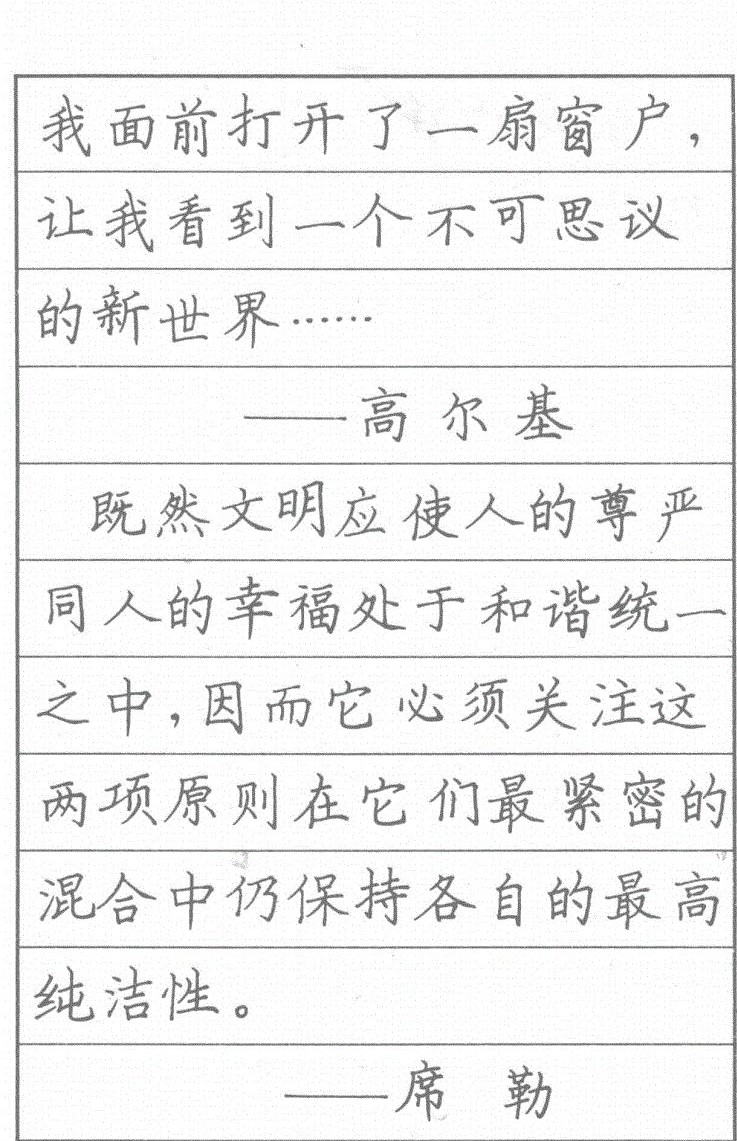 我面前打开了一扇窗户，
让我看到一个不可思议
的新世界……
——高尔基
既然文明应使人的尊严
同人的幸福处于和谐统一
之中，因而它必须关注这
两项原则在它们最紧密的
混合中仍保持各自的最高
纯洁性。
——席勒